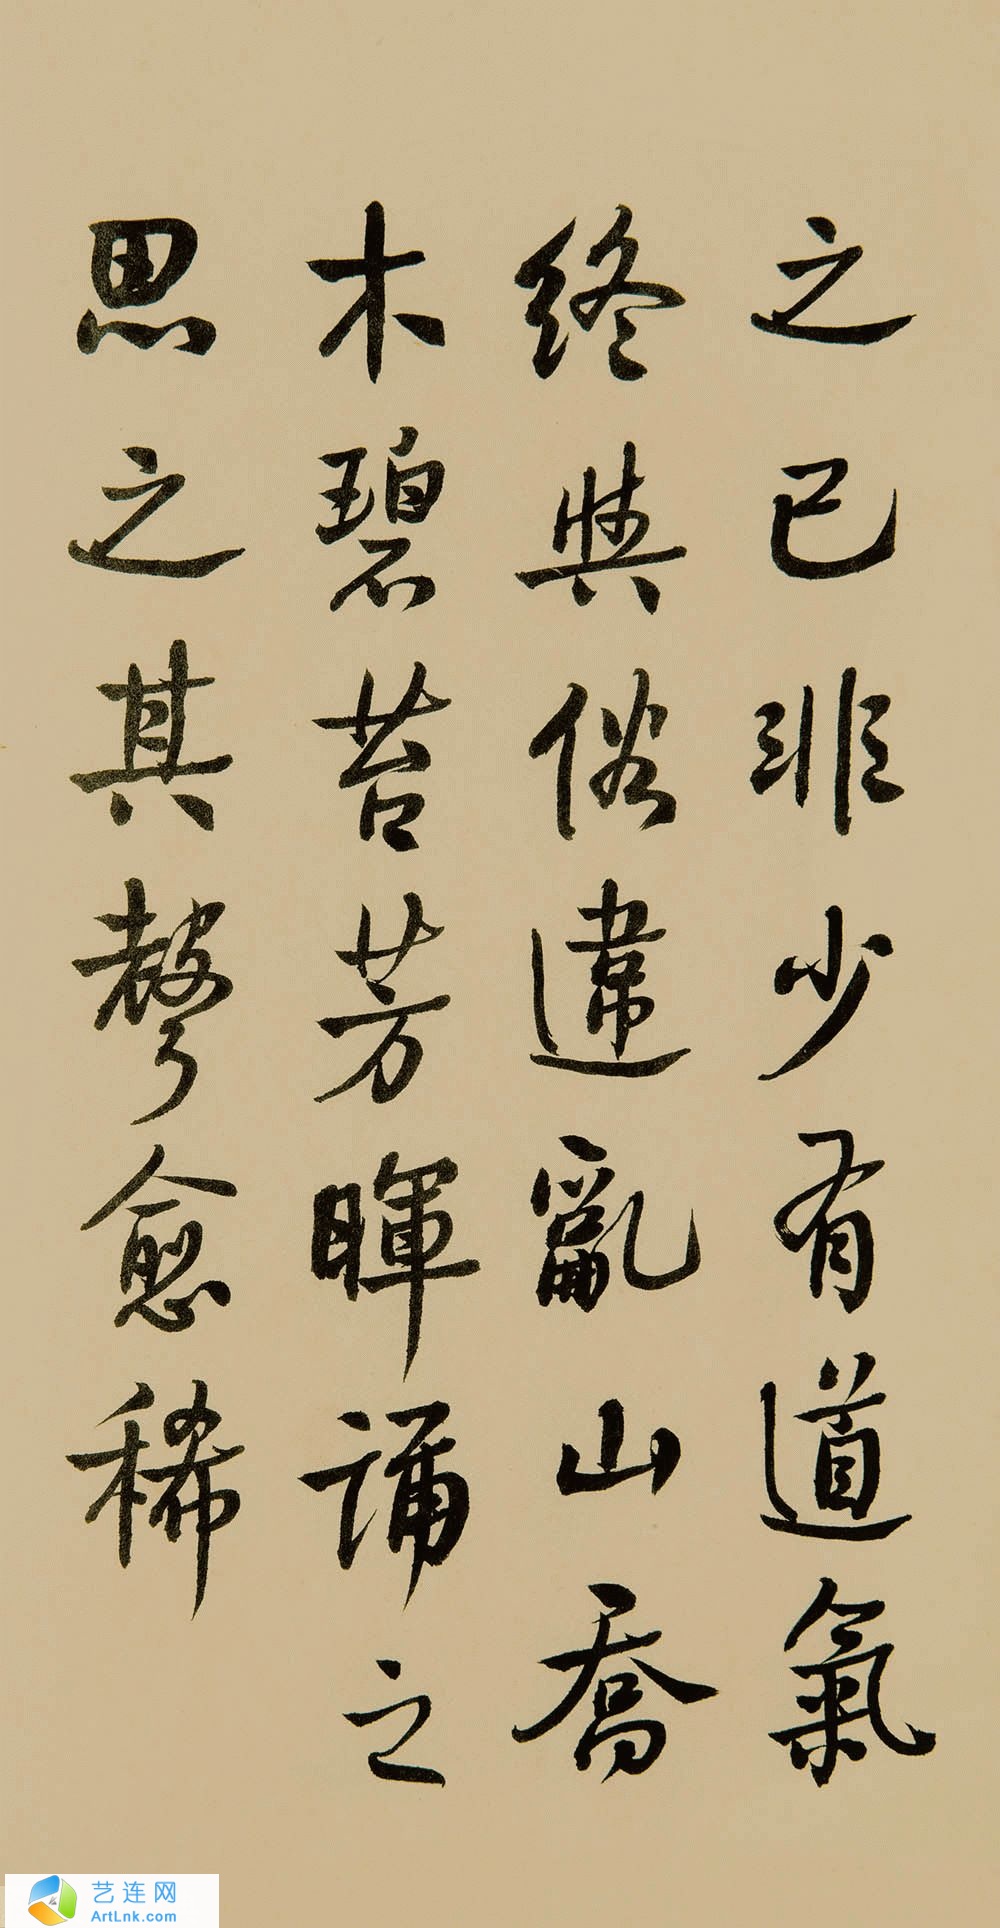 之已非少有道氣
終與俗違亂山喬
木碧苔芳暉誦之
思之其聲愈稀
艺连网
ArtLnk.com